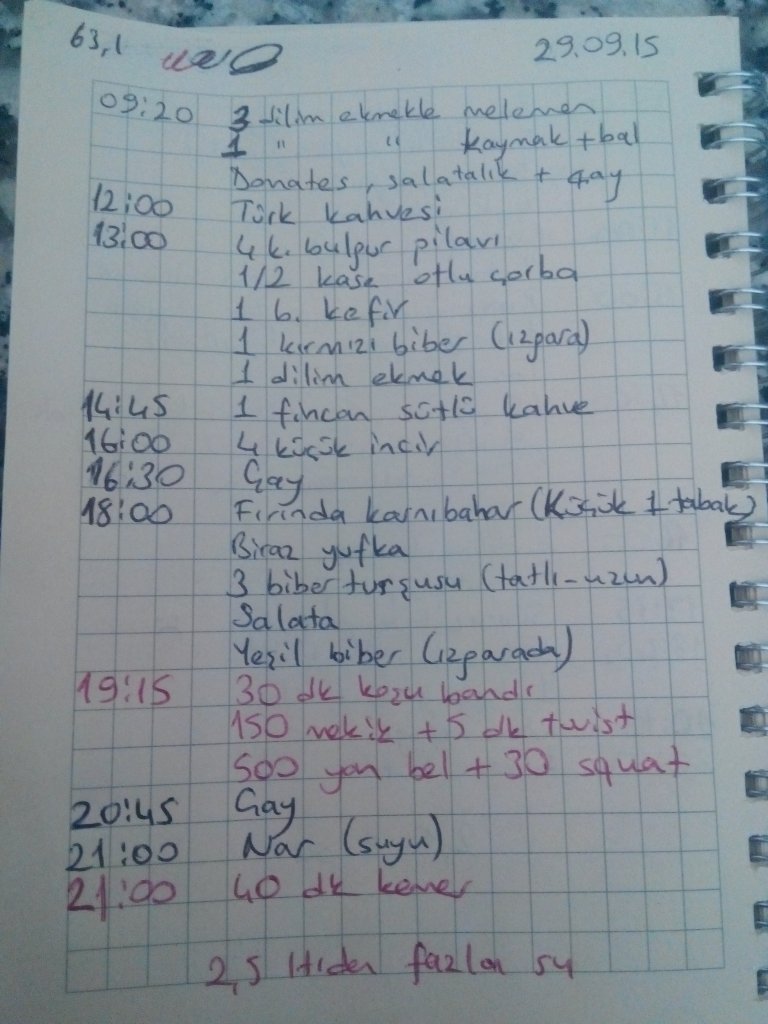 63,1 29.09.15
09:20 3 dilim ekmekle melemen
1 " " kaymak + bal
Domates, salatalık + çay
12:00 Türk kahvesi
13:00 4 k. bulgur pilavı
1/2 kase otlu çorba
1 b. kefir
1 kırmızı biber (ızgara)
1 dilim ekmek
14:45 1 fincan sütlü kahve
16:00 4 küçük incir
16:30 Çay
18:00 Fırında karnıbahar (Küçük 1 tabak)
Biraz yufka
3 biber turşusu (tatlı-uzun)
Salata
Yeşil biber (ızgarada)
19:15 30 dk koşu bandı
150 mekik + 5 dk twist
500 yan bel + 30 squat
20:45 Çay
21:00 Nar (suyu)
21:00 40 dk kemer
2,5 ltden fazla su